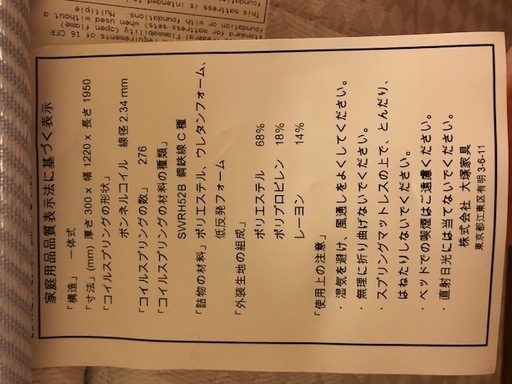 家庭用品品質表示法に基づく表示
「構造」 一体式
「寸法」(mm) 厚さ 300 x 幅 1220 x 長さ 1950
「コイルスプリングの形状」
ボンネルコイル 線径 2.34 mm
「コイルスプリングの数」 276
「コイルスプリングの材料の種類」
SWRH52B 鋼鉄線 C 種
「詰物の材料」 ポリエステル、ウレタンフォーム、
低反発フォーム
「外装生地の組成」
ポリエステル 68%
ポリプロピレン 18%
レーヨン 14%
「使用上の注意」
・湿気を避け、風通しをよくしてください。
・無理に折り曲げないでください。
・スプリングマットレスの上で、とんだり、
はねたりしないでください。
・ベッドでの喫煙はご遠慮ください。
・直射日光には当てないでください。
株式会社 大塚家具
東京都江東区有明 3-6-11
This mattress is intended to
foundation
or with
foundations
mattress sets
when used without a
Multiple
Flammability (open flame)
16 CFR